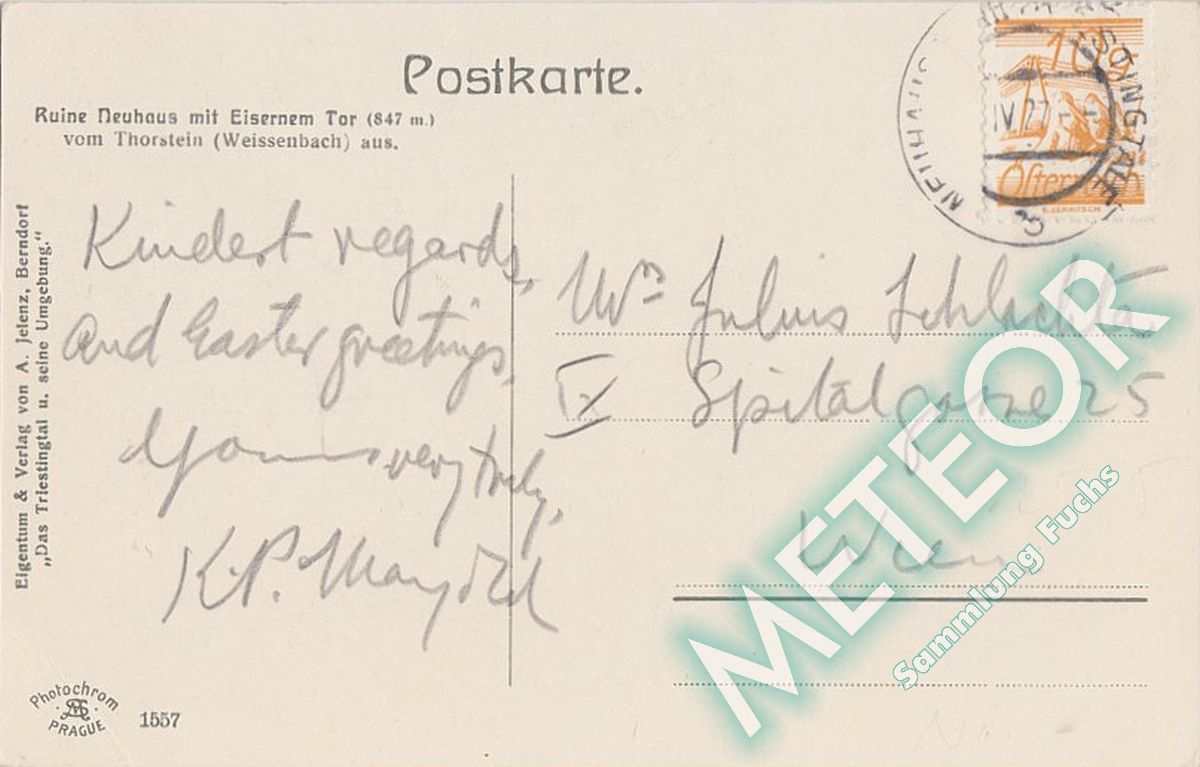 Postkarte.
Ruine Neuhaus mit Eisernem Tor (847 m.)
vom Thorstein (Weissenbach) aus.
10g
IV 27
Österreich
NEUHAUS
Kindest regards,
and Easter greetings,
Yours very truly,
K. P.
Mr Julius Schlachta
IX Spitalgasse 25
Wien
Eigentum & Verlag von A. Jelenz, Berndorf
„Das Triestingtal u. seine Umgebung.“
Photochrom
PRAGUE
1557
METEOR
Sammlung Fuchs